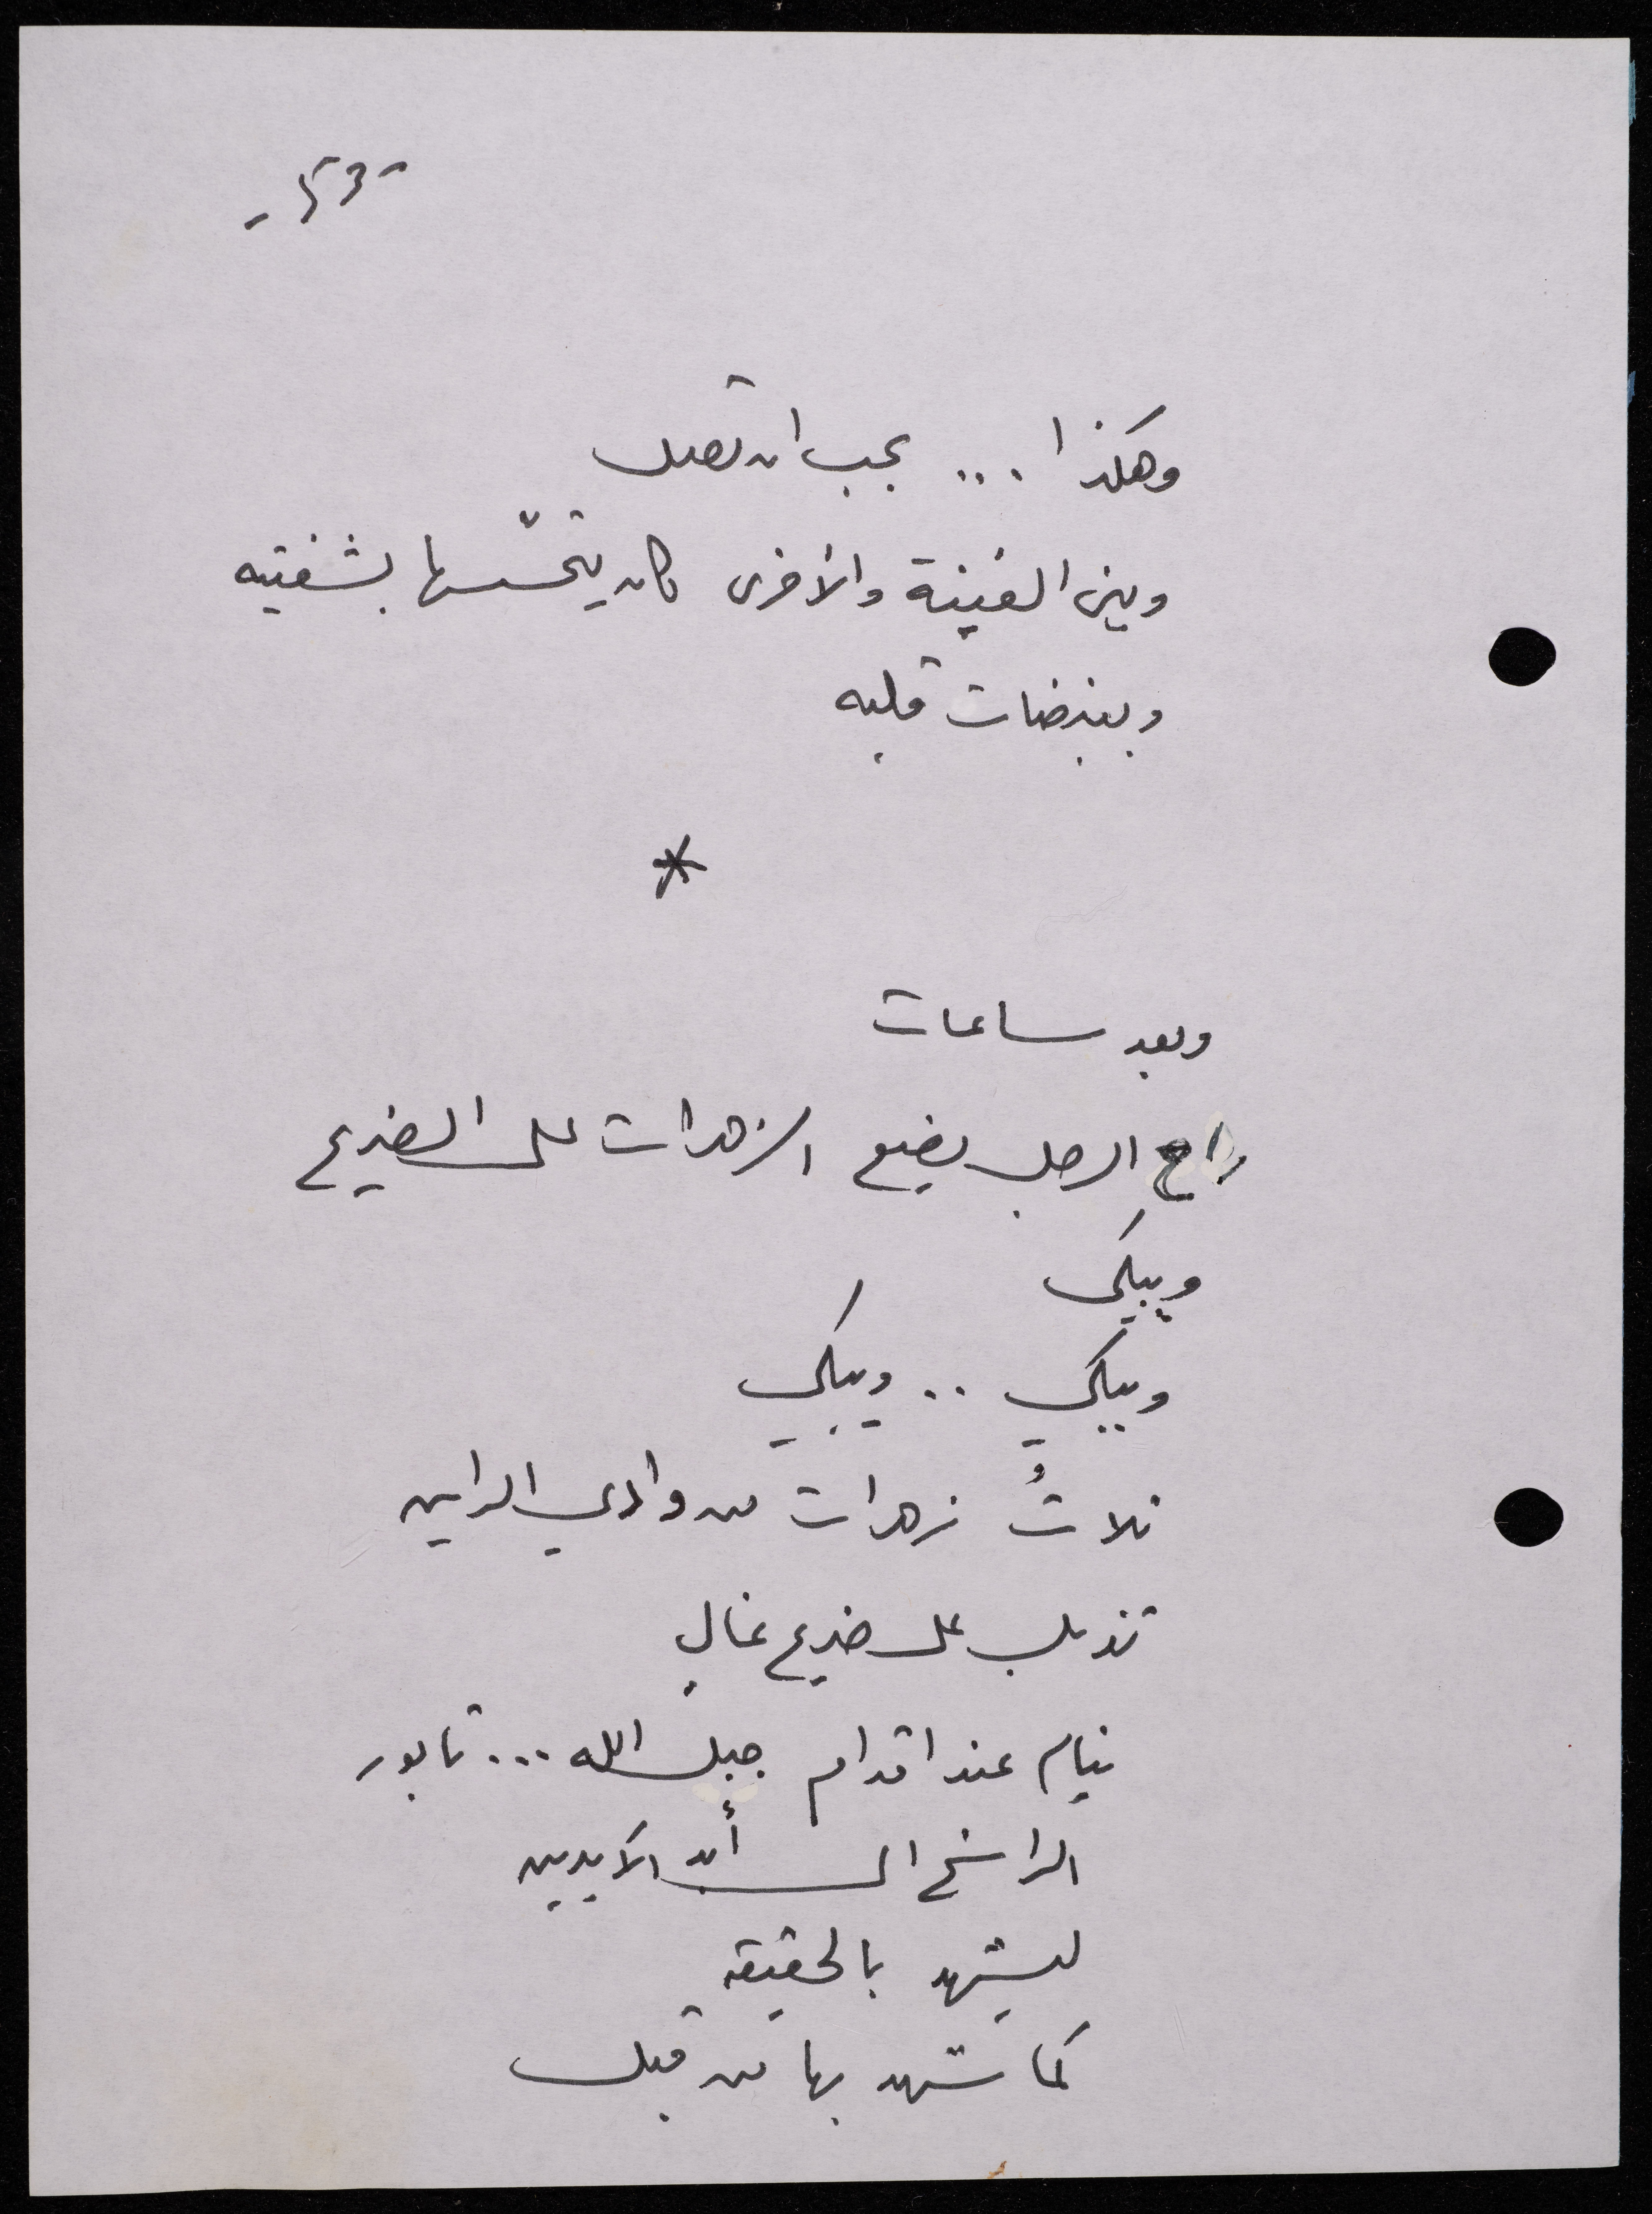 - ٥٣ -
وهكذا ... يجب ان تصل
وبين الفينة والأخرى كان يتحسّسها بشفتيه
وبنبضات قلبه
*
وبعد ساعات
راح الرجل يضع الزهرات على الضريح
ويبكي
ويبكي .. ويبكي
ثلاثُ زهرات من وادي الراين
تذبل على ضريح غالٍ
ينام عند اقدام جبل الله ... تابور
الراسخ الى أبد الآبدين
ليشهد بالحقيقة
كما شهد بها من قبل